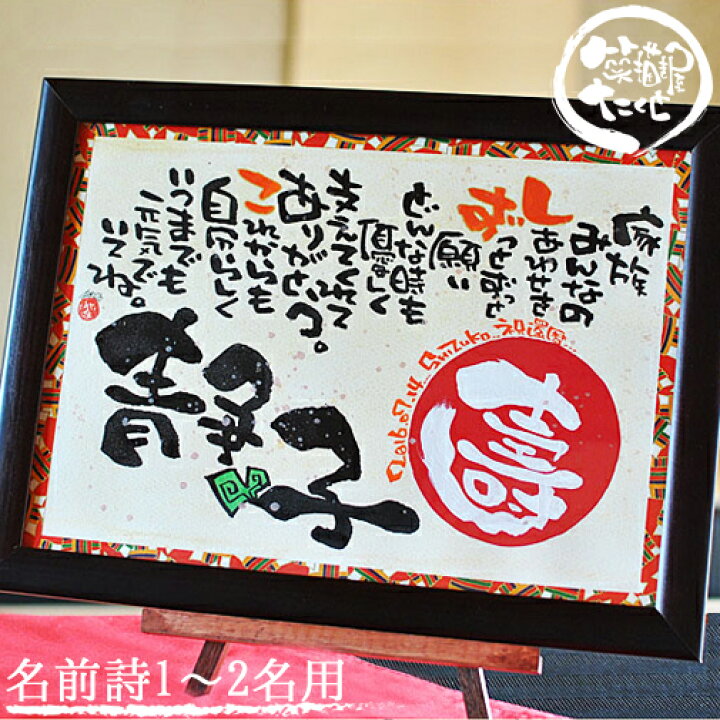 家族
みんなの
しあわせを
ずっとずっと
願い
どんな時も
優しく
支えてくれて
ありがとう。
これからも
自分らしく
いつまでも
元気で
いてね。
静子
祝還暦
Shizuko
名前詩1〜2名用